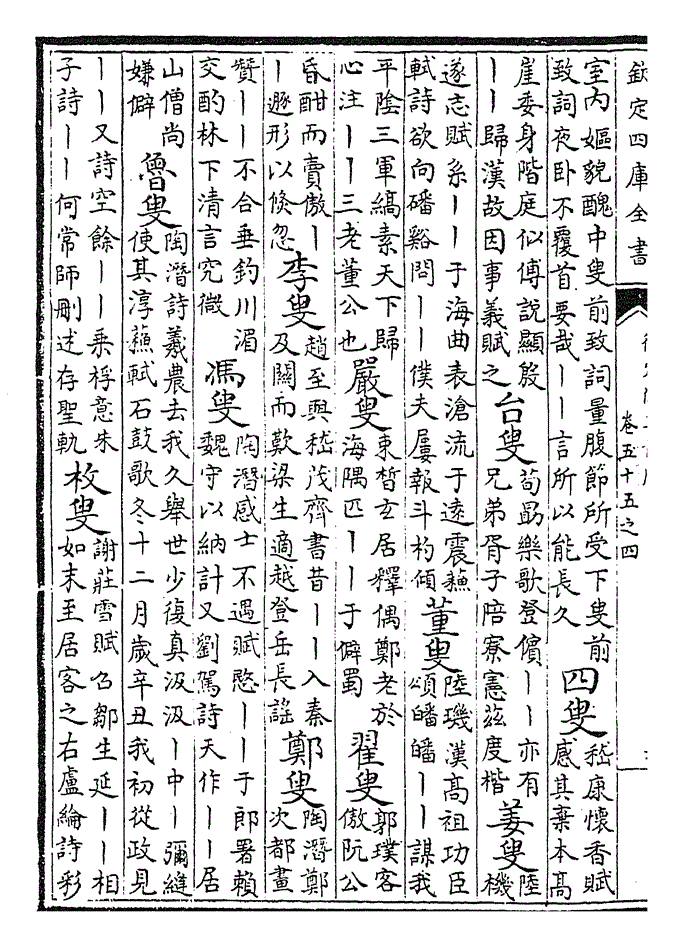 欽定四庫全書
卷五十五之四
室内嫗貌醜中叟前致詞量腹節所受下叟前
致詞夜卧不覆首要哉丨丨言所以能長久
四叟
嵇康懷香賦
感其棄本髙
崖委身階庭似傅說顯殷
丨丨歸漢故因事義賦之
台叟
荀勗樂歌登儐丨丨亦有
兄弟胥子陪寮憲茲度楷
姜叟
陸
機
遂志賦系丨丨于海曲表滄流于遠震蘓
軾詩欲向磻谿問丨丨僕夫屢報斗杓傾
董叟
陸璣漢髙祖功臣
頌皤皤丨丨謀我
平陰三軍縞素天下歸
心注丨丨三老董公也
嚴叟
束晳玄居釋偶鄭老於
海隅匹丨丨于僻蜀
翟叟
郭璞客
傲阮公
昏酣而賣傲丨
丨遯形以倐忽
李叟
趙至與嵇茂齊書昔丨丨入秦
及關而歎梁生適越登岳長謡
鄭叟
陶潛鄭
次都畫
贊丨丨不合垂釣川湄
交酌林下清言究微
馮叟
陶潛感士不遇賦愍丨丨于郎署賴
魏守以納計又劉駕詩天作丨丨居
山僧尚
嫌僻
魯叟
陶潛詩羲農去我久舉世少復真汲汲丨中丨彌縫
使其淳蘓軾石鼓歌冬十二月歲辛丑我初從政見
丨丨又詩空餘丨丨乘桴意朱
子詩丨丨何常師刪述存聖軌
枚叟
謝莊雪賦召鄒生延丨丨相
如末至居客之右盧綸詩彩